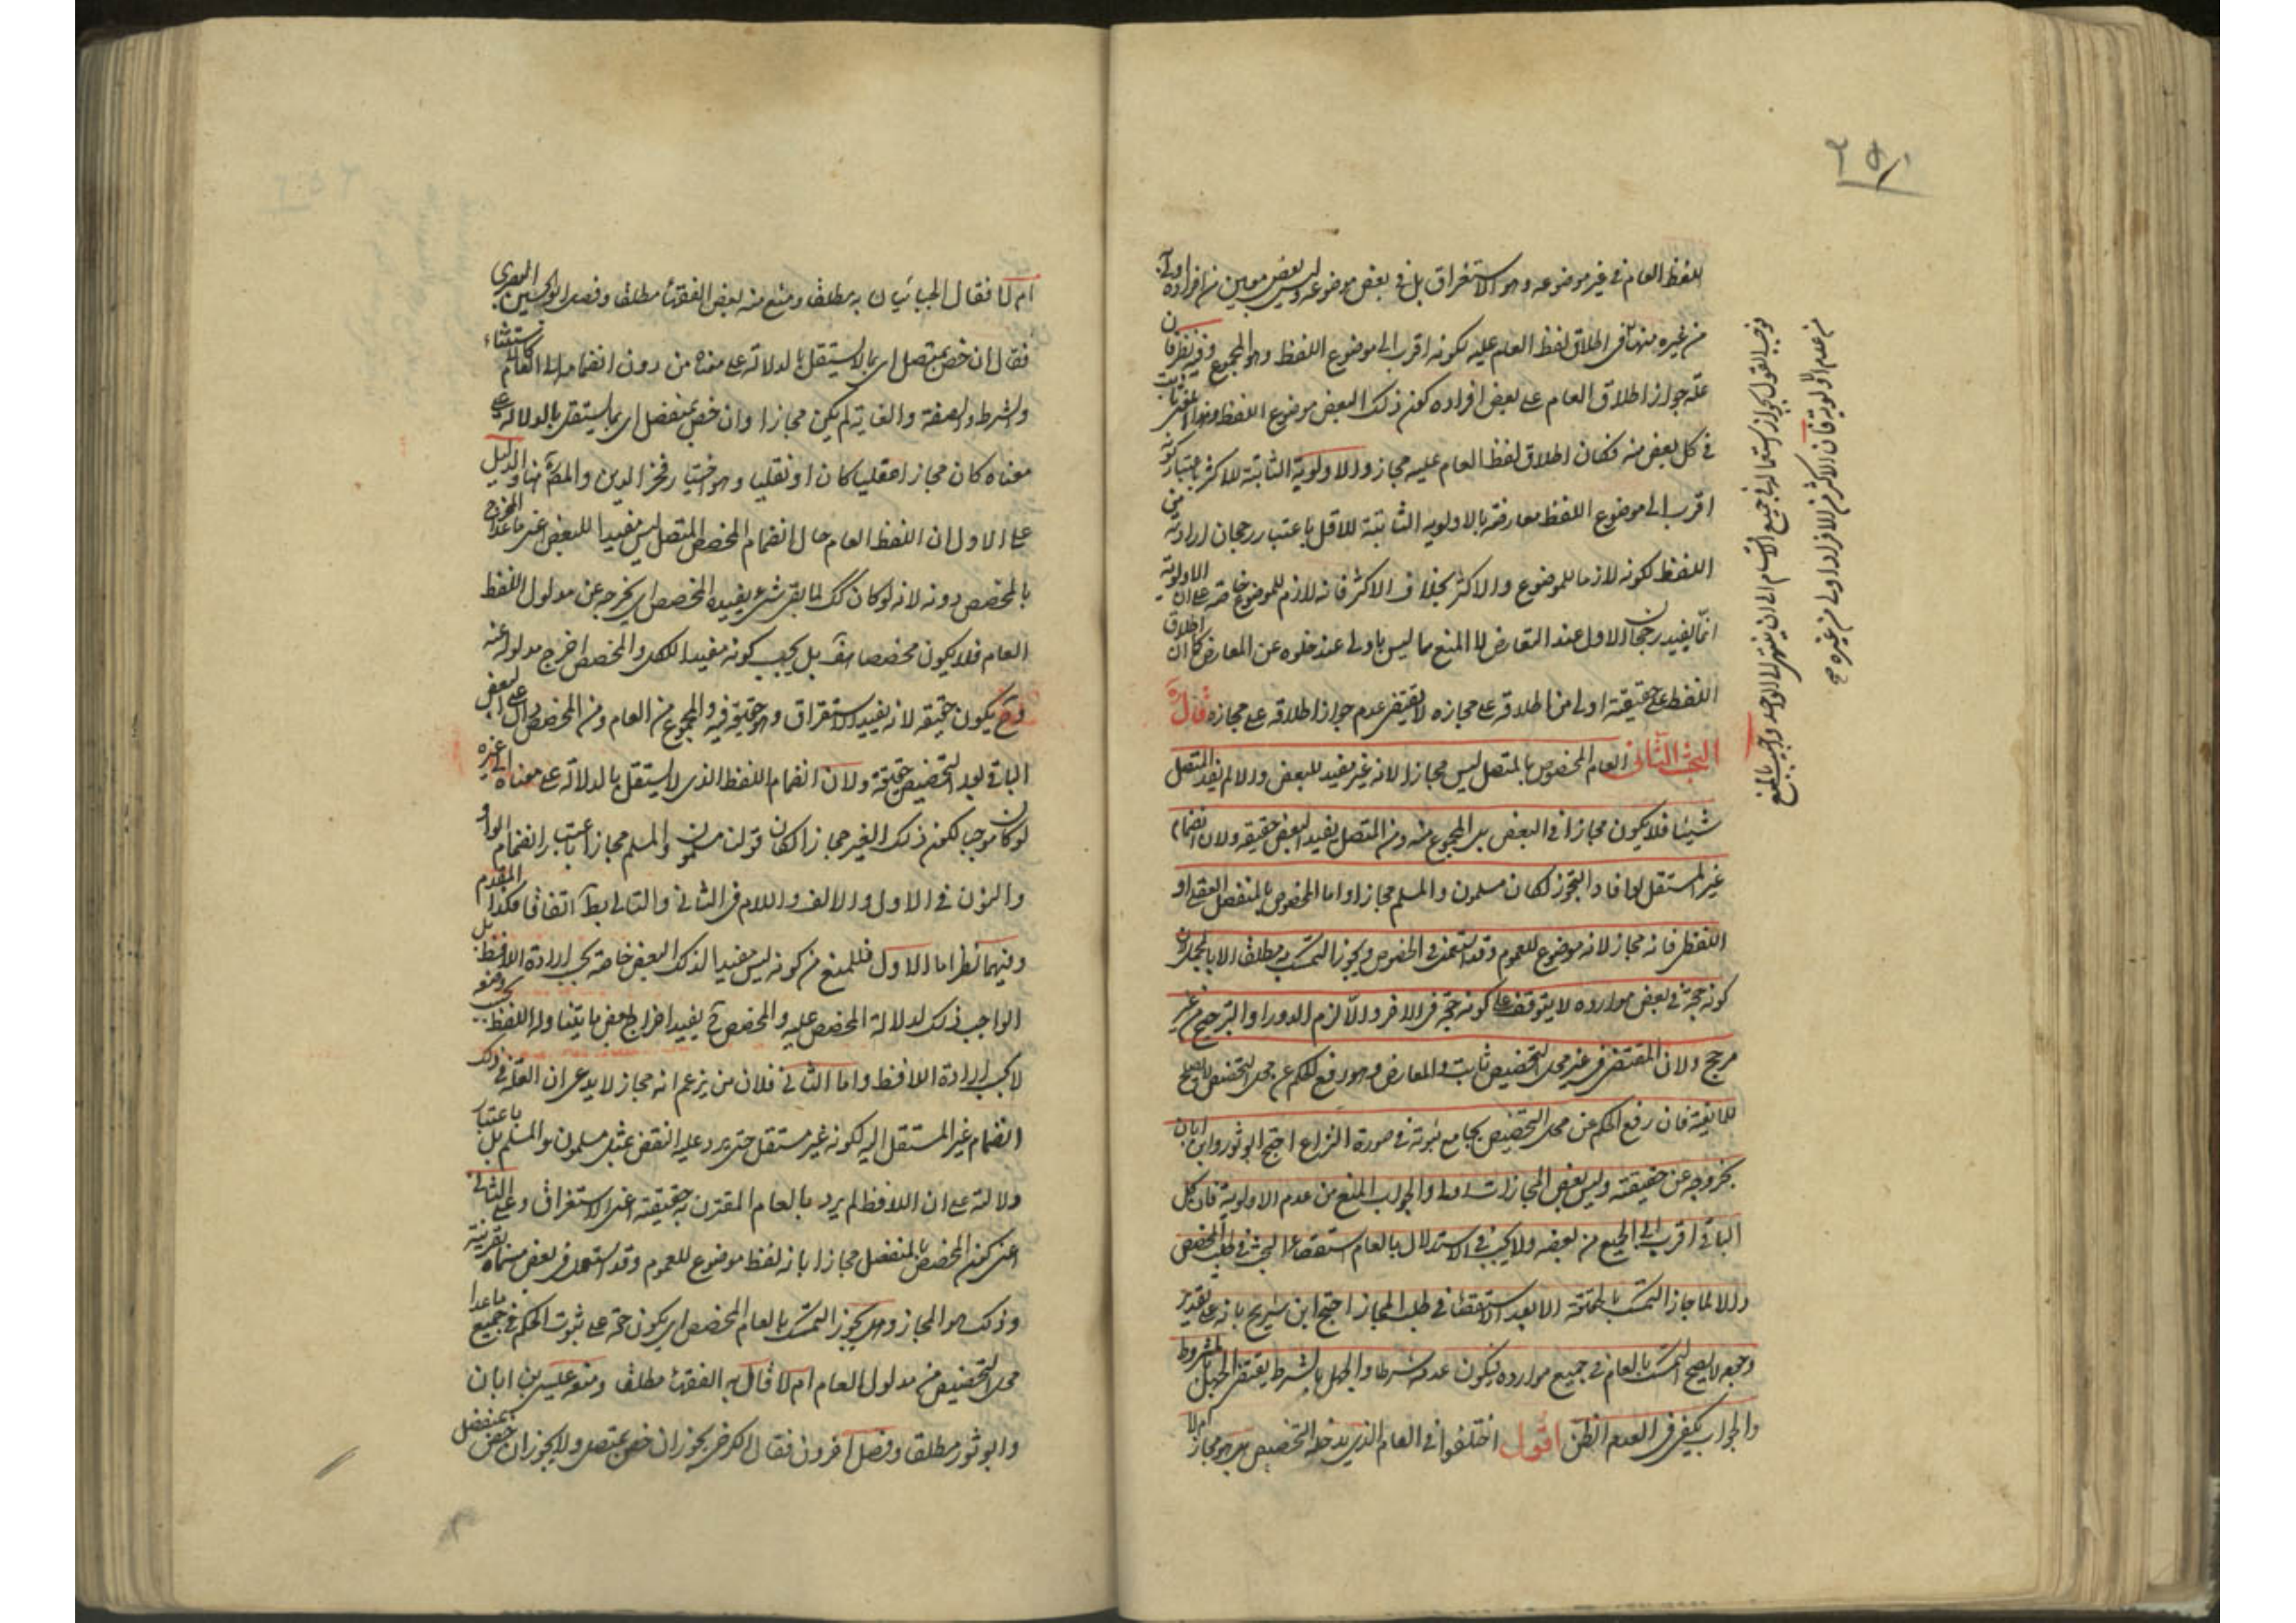 ٢٥١
اللفظ العام في غير موضوعه وهو الاستغراق بل في بعض موضوعه وليس بعض معين من افراده اولى
من غيره منها في اطلاق لفظ العام عليه لكونه اقرب الى موضوع اللفظ وهو المجموع وفيه نظر فان
علة جواز اطلاق العام على بعض افراده كون ذلك البعض موضوع اللفظ وهذا المعنى ثابت
في كل بعض منه فكان اطلاق لفظ العام عليه مجاز والاولوية الثابتة للاكثر باعتبار كونه
اقرب الى موضوع اللفظ معارضة بالاولويه الثابتة للاقل باعتبار رجحان ارادته من
اللفظ لكونه لازما للموضوع والاكثر بخلاف الاكثر فانه لازم للموضوع خاصة على ان الاولوية
انما يفيد رجحان الاول عند التعارض لا المنع مما ليس باولى عند خلوه عن المعارض كما ان اطلاق
اللفظ على حقيقته اولى من اطلاقه على مجازه لا يقتضي عدم جواز اطلاقه على مجازه قال
البحث الثاني العام المخصوص بالمتصل ليس مجازا لانه غير مفيد للبعض والا لم يفد المتصل
شيئا فلا يكون مجازا في البعض بل المجموع منه ومن المتصل يفيد البعض حقيقة ولان انضمام
غير المستقل لو افاد التجوز لكان مسلمون والمسلم مجازا واما المخصوص بالمنفصل العقلي او
اللفظي فانه مجاز لانه موضوع للعموم وقد استعمل في الخصوص ويجوز التمسك به مطلقا الا بالمجمل لان
كونه حجة في بعض موارده لا يتوقف على كونه حجة في الاخر والا لزم الدور او الترجيح من غير
مرجح ولان المقتضي في غير محل التخصيص ثابت والمعارض وهو رفع الحكم عن محل التخصيص لا يصلح
للمانعية فان رفع الحكم عن محل التخصيص يجامع ثبوته في صورة النزاع احتج ابو ثور وابن ابان
بخروجه عن حقيقته وليس بعض المجازات اولى والجواب المنع من عدم الاولوية فان كل
الباقي اقرب الى الجميع من بعضه ولا يجب في الاستدلال بالعام استقصاء البحث في طلب المخصص
والا لما جاز التمسك بالحقيقة الا بعد الاستقصاء في طلب المجاز احتج ابن شريح بانه على تقدير
وجوده لا يصح التمسك بالعام في جميع موارده فيكون عدمه شرطا والجهل بالشرط يقتضي الجهل بالمشروط
والجواب يكفي في العدم الظن اقول اختلفوا في العام الذي يدخله التخصيص هل هو مجاز ام لا
فوجب القول بجواز استعماله في جميع الاقسام الى ان ينتهي الى الواحد واجيب بالمنع
من عدم الاولوية فان الاكثر من الافراد اولى من غيره صح
ام لا فقال الجبائيان به مطلقا ومنع منه بعض الفقهاء مطلقا وفصل ابو الحسين البصري
فقال ان خص بمتصل اي بما لا يستقل بالدلالة على معناه من دون انضمامه الى العام كالاستثناء
والشرط والصفة والغاية لم يكن مجازا وان خص بمنفصل اي بما يستقل بالدلالة على
معناه كان مجازا عقليا كان او نقليا وهو اختيار فخر الدين والمص هنا والدليل
على الاول ان اللفظ العام حال انضمام المخصص المتصل ليس مفيدا للبعض اعني ما عدا المخرج
بالمخصص دونه لانه لو كان كك لما بقى شئ يفيده المخصص اي يخرجه عن مدلول اللفظ
العام فلا يكون مخصصا هف بل يجب كونه مفيدا للكل والمخصص اخرج مدلوله عنه
وح يكون حقيقة لانه يفيد الاستغراق وهو حقيقة فيه والمجموع من العام ومن المخصص دال على البعض
الباقي بعد التخصيص حقيقة ولان انضمام اللفظ الذي لا يستقل بالدلالة على معناه الى غيره
لو كان موجبا لكون ذلك الغير مجازا لكان قولنا مسلمون والمسلم مجازا باعتبار انضمام الواو
والنون في الاول والالف واللام في الثاني والتالي بط اتفاقا فكذا المقدم
وفيهما نظر اما الاول فللمنع من كونه ليس مفيدا لذلك البعض خاصة بحسب ارادة اللافظ بل
الواجب ذلك لدلالة المخصص عليه والمخصص ح يفيد اخراج بعض ما يتناوله اللفظ بحسب وضعه
لا بحسب ارادة اللافظ واما الثاني فلان من يزعم انه مجاز لا يدعي ان العلة في ذلك
انضمام غير المستقل اليه لكونه غير مستقل حتى يرد عليه النقض بمثل مسلمون والمسلم بل باعتبار
دلالته على ان اللافظ لم يرد بالعام المقترن به حقيقته اعني الاستغراق وعلى الثاني
اعني كون المخصص بالمنفصل مجازا بانه لفظ موضوع للعموم وقد استعمل في بعض مسماه بقرينة
وذلك هو المجاز وهل يجوز التمسك بالعام المخصص اي يكون حجة على ثبوت الحكم في جميع ما عدا
محل التخصيص من مدلول العام ام لا قال به الفقهاء مطلقا ومنعه عيسى بن ابان
وابو ثور مطلقا وفصل اخرون فقال الكرخي يجوز ان خص بمتصل ولا يجوز ان خص بمنفصل